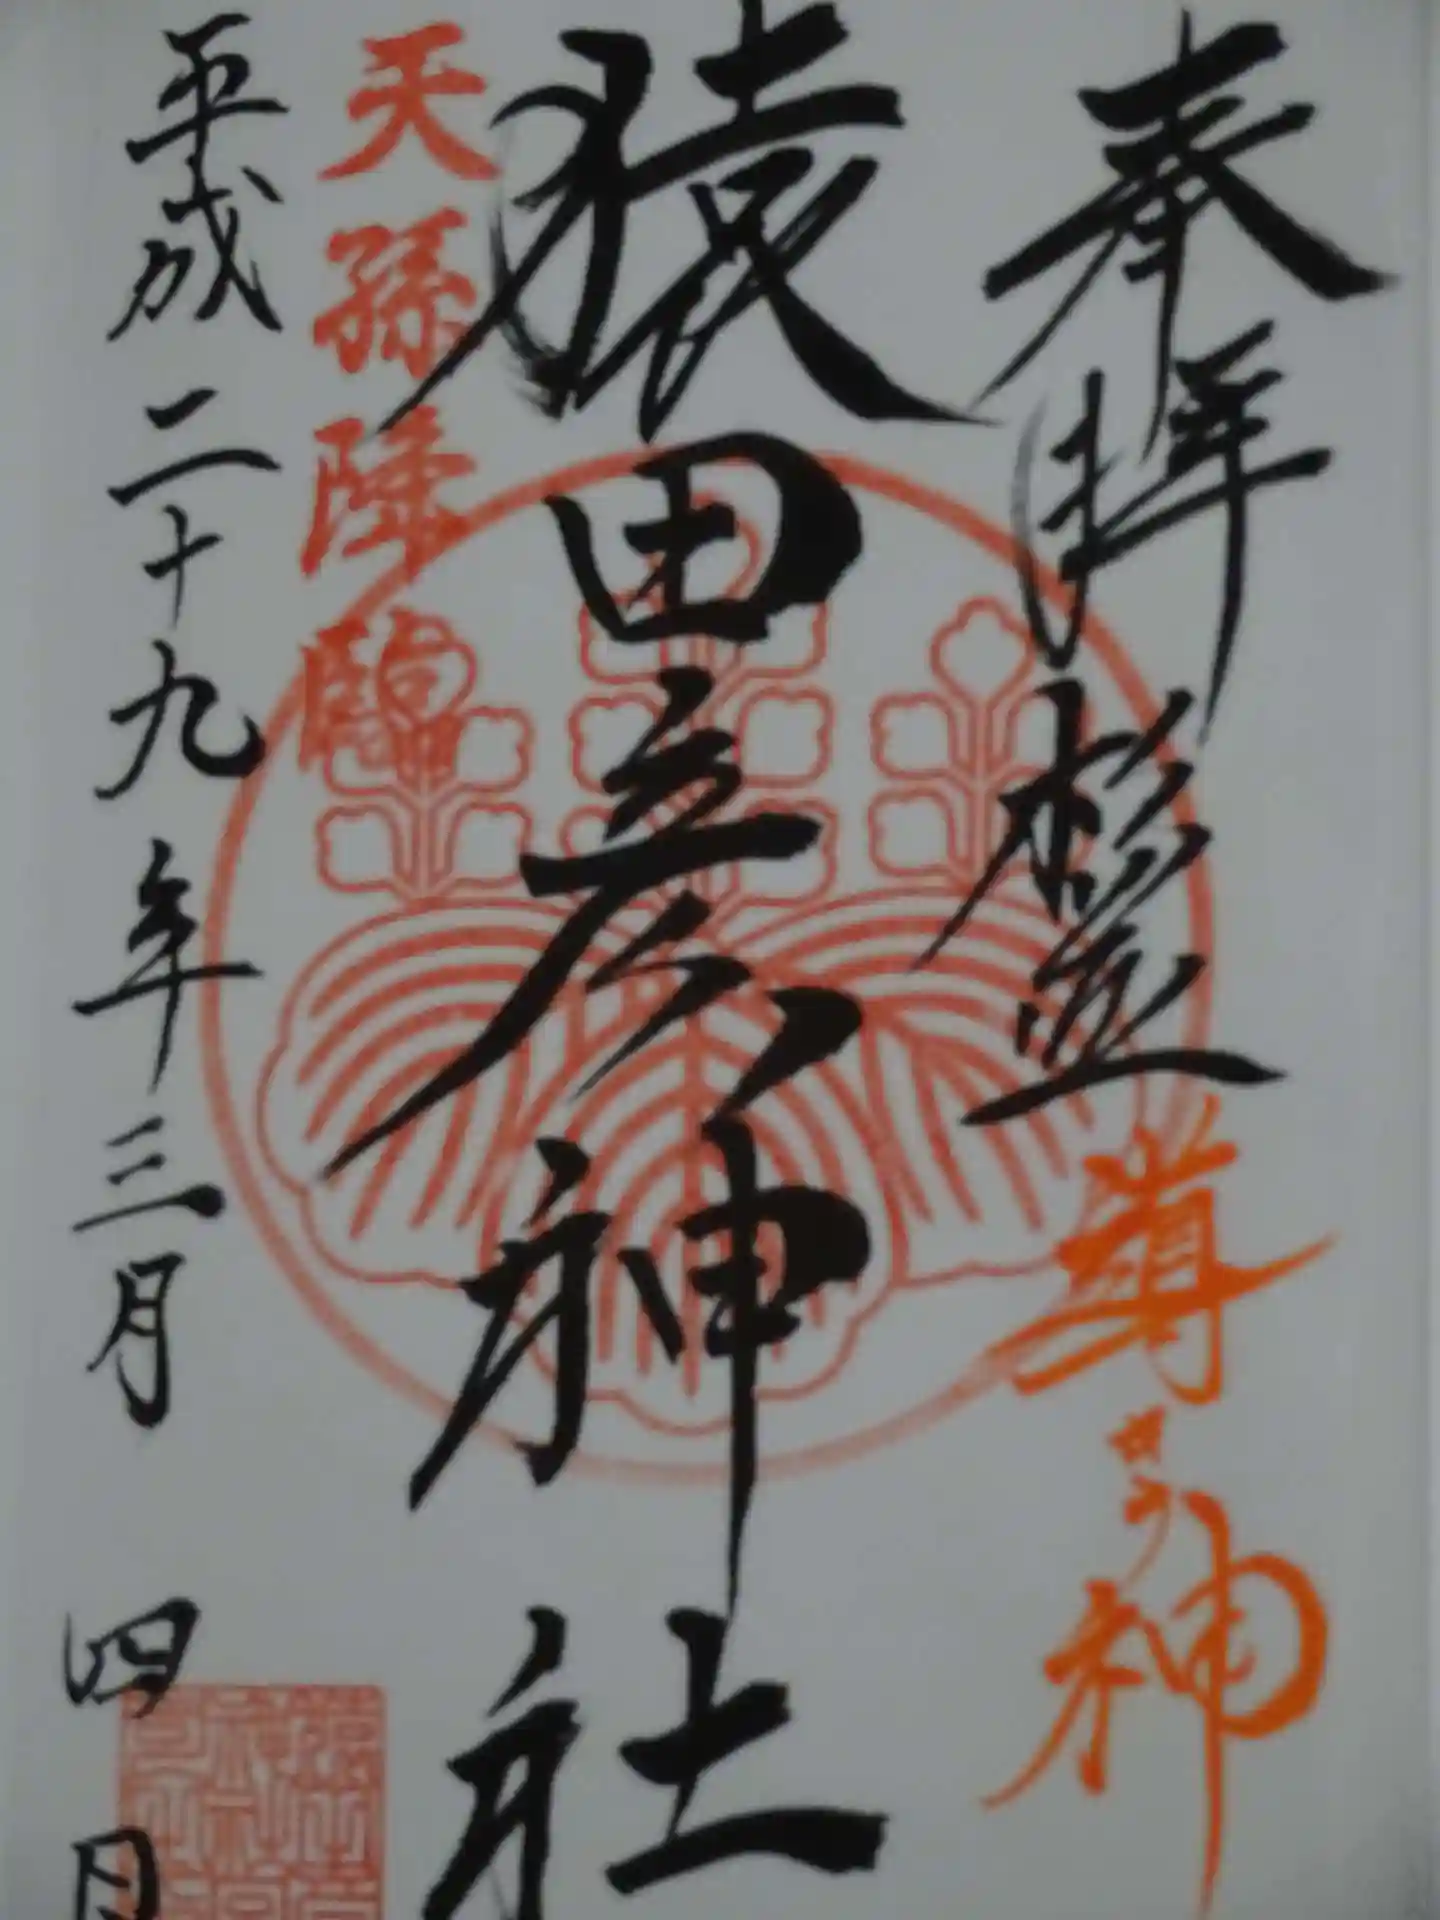 奉拝 杉並 導きの神
猿田彦神社
天孫降臨
平成二十九年三月四日